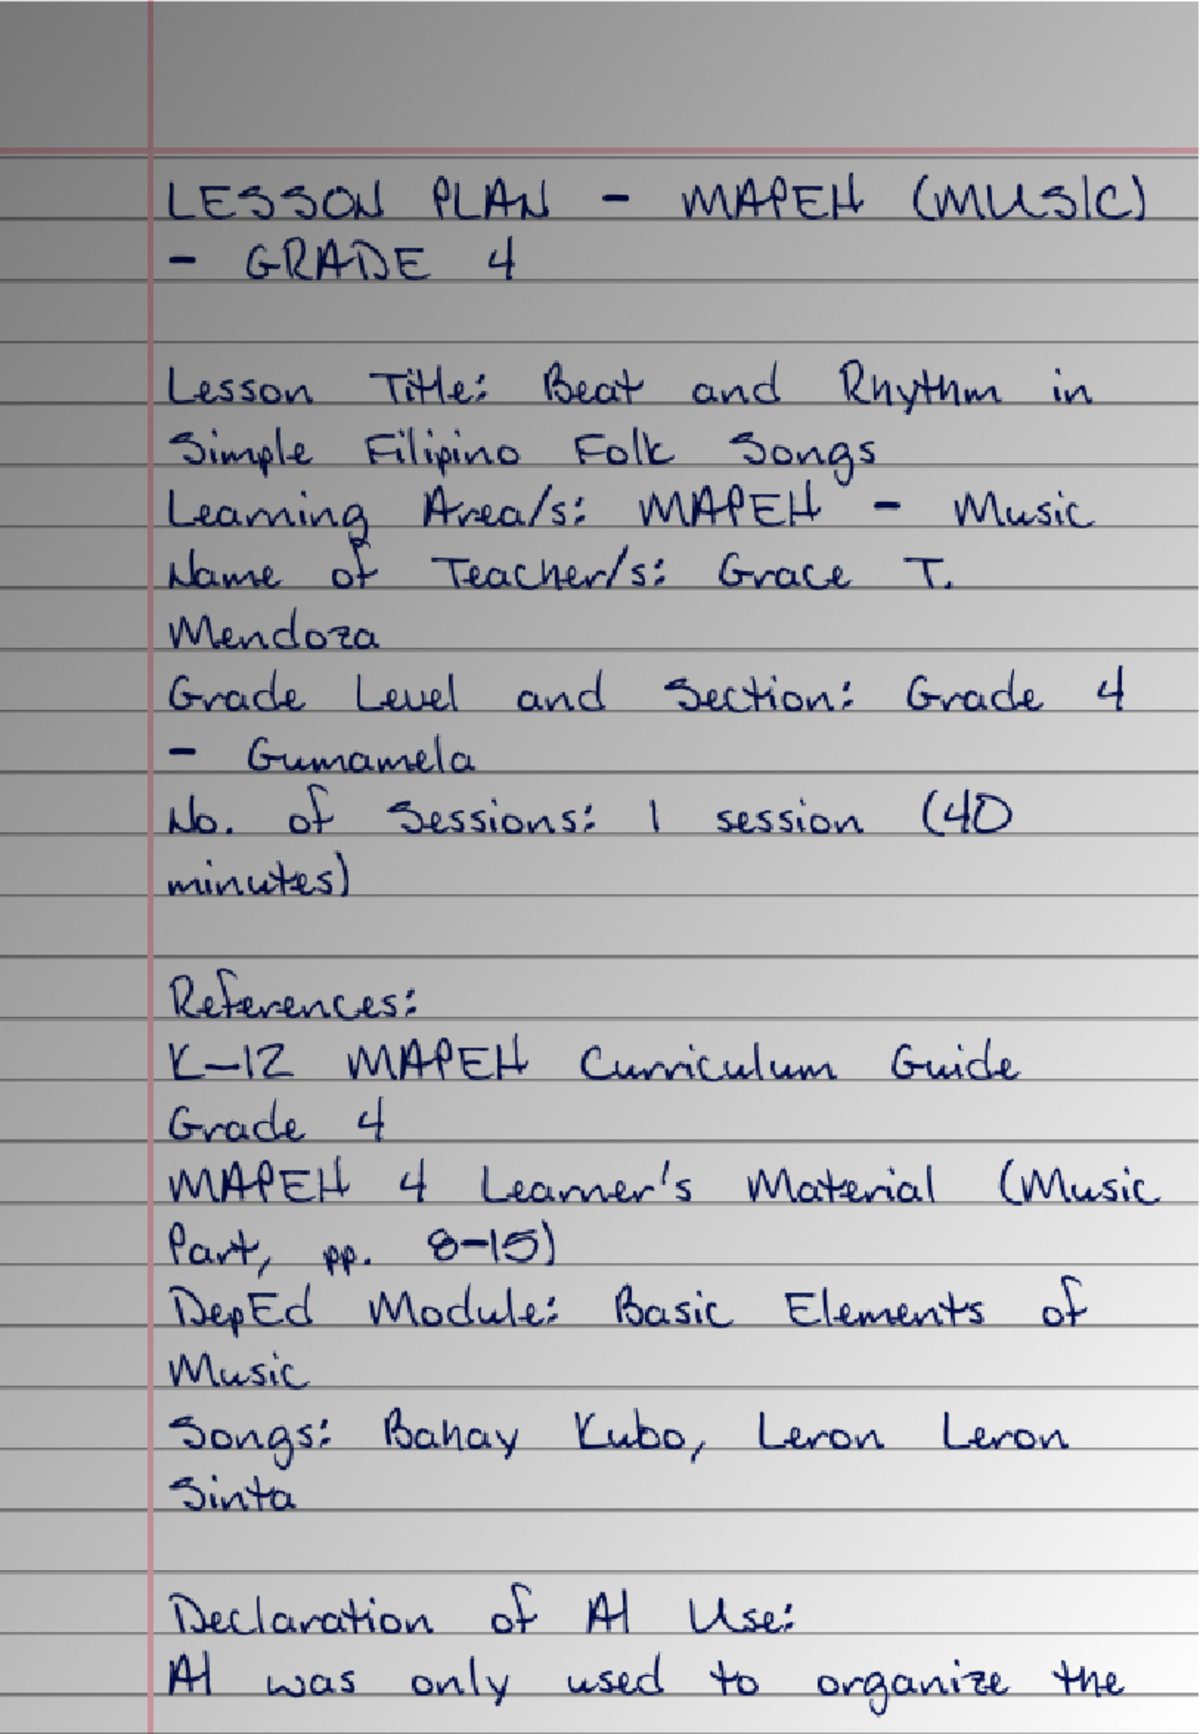 LESSON PLAN - MAPEH (MUSIC)
- GRADE 4
Lesson Title: Beat and Rhythm in
Simple Filipino Folk Songs
Learning Area/s: MAPEH - Music
Name of Teacher/s: Grace T.
Mendoza
Grade Level and Section: Grade 4
- Gumamela
No. of Sessions: 1 session (40
minutes)
References:
K-12 MAPEH Curriculum Guide
Grade 4
MAPEH 4 Learner's Material (Music
Part, pp. 8-15)
DepEd Module: Basic Elements of
Music
Songs: Bahay Kubo, Leron Leron
Sinta
Declaration of AI Use:
AI was only used to organize the